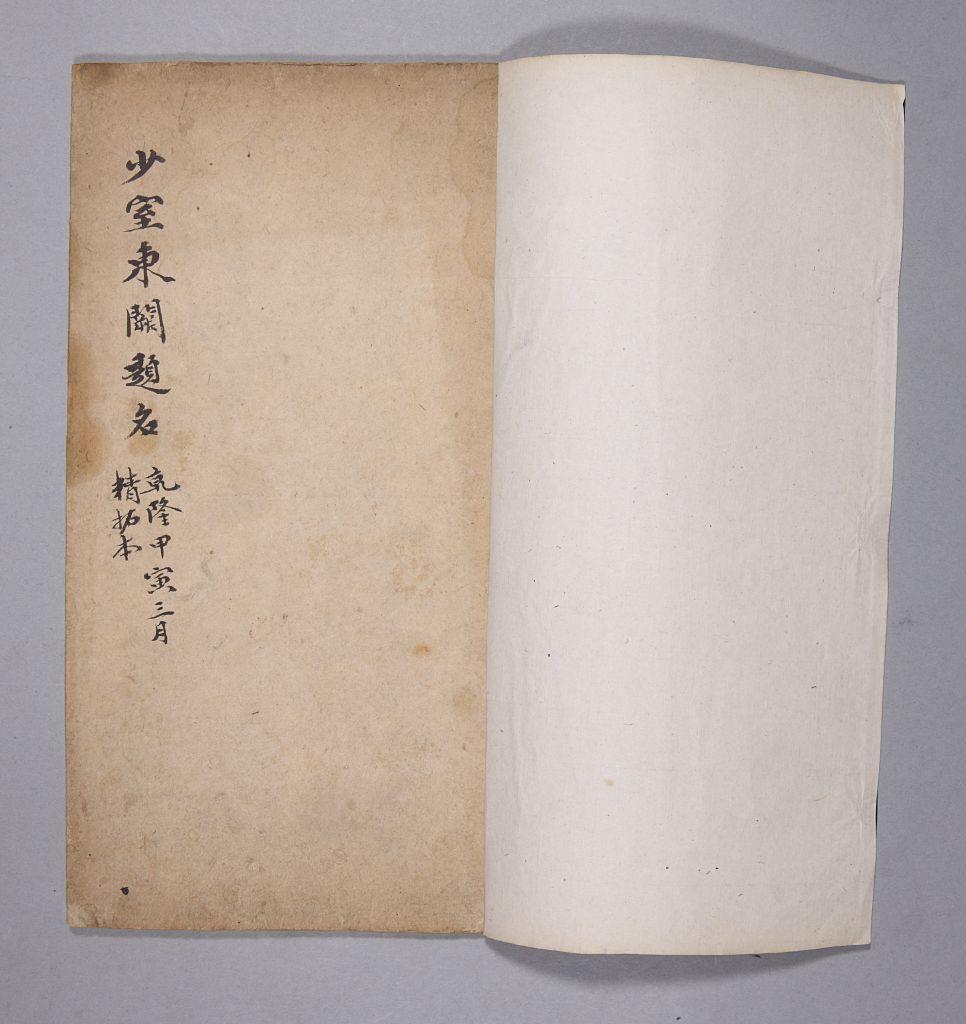 少室東闕題名
乾隆甲寅三月
精拓本